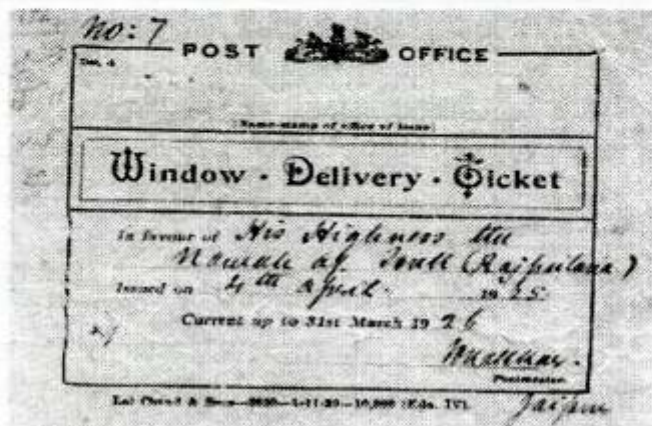 No: 7
POST OFFICE
[Name-stamp of office of issue]
Window · Delivery · Ticket
In favour of His Highness the
Nawab of Tonk (Rajputana)
Issued on 4th April 1925
Current up to 31st March 1926
Postmaster
Jaipur